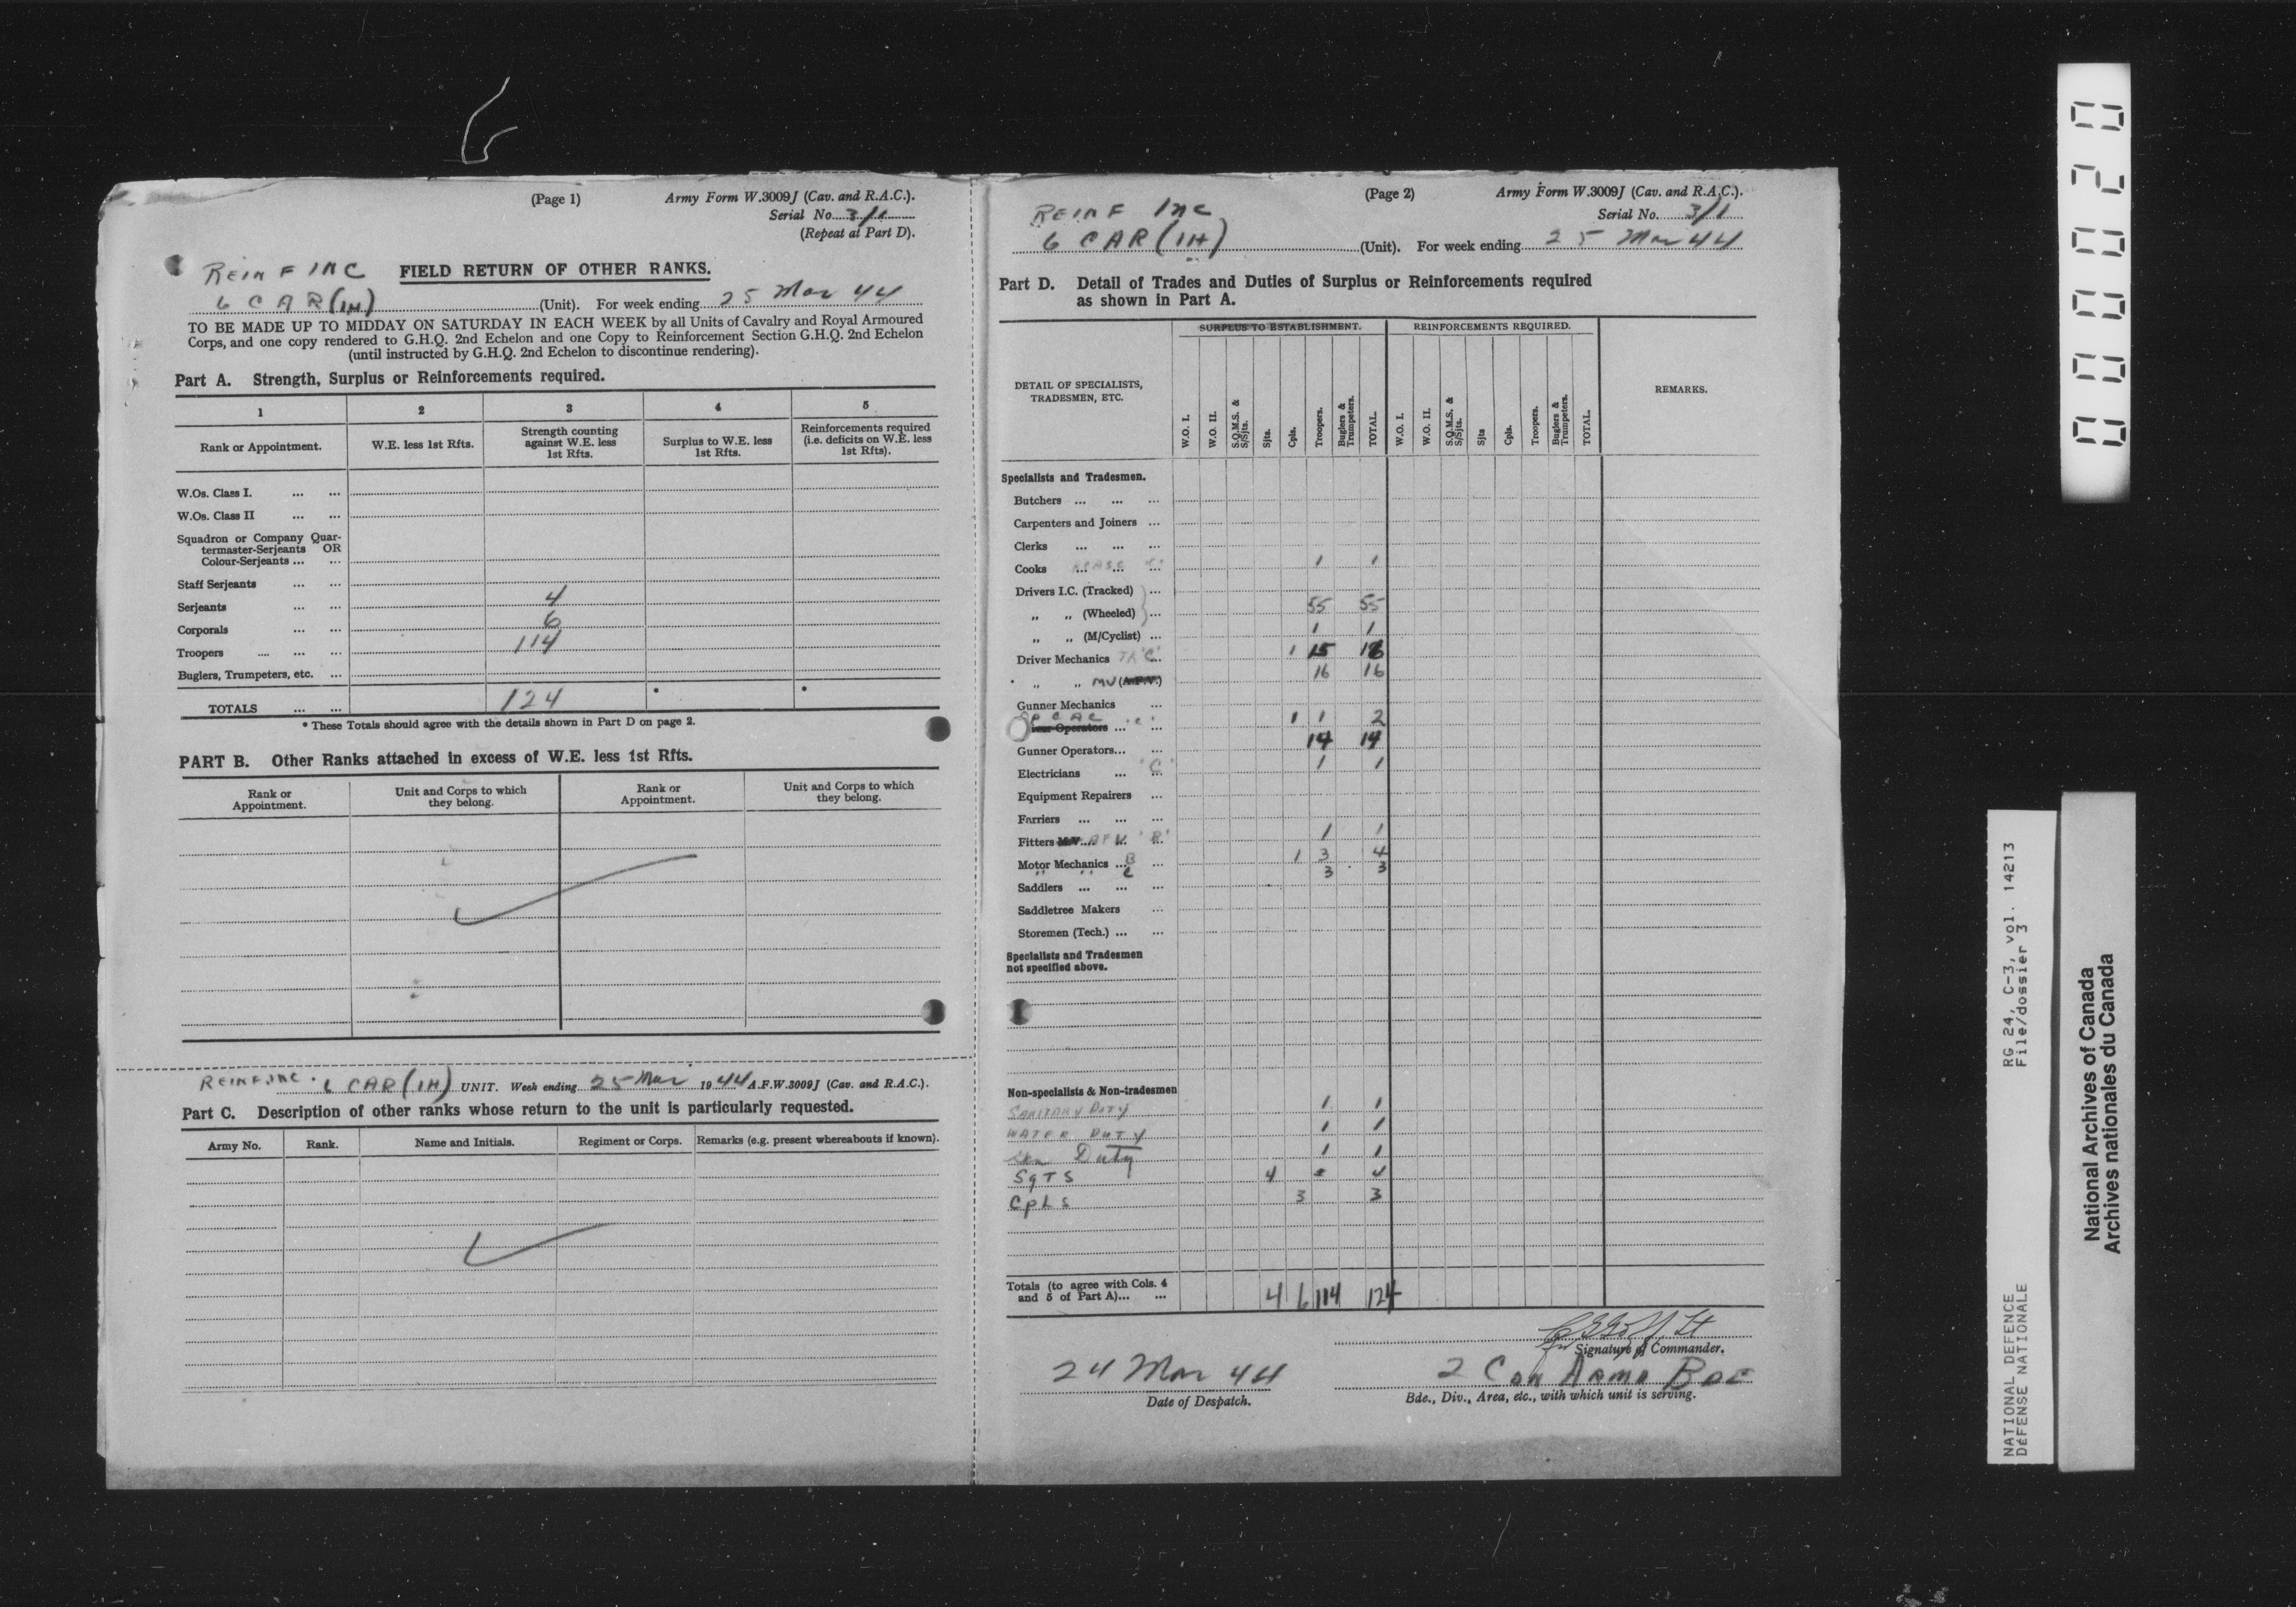 (Page 1)
Army Form W.3009J (Cav. and R.A.C.).
Serial No. 3/1
(Repeat at Part D).
REINF INC FIELD RETURN OF OTHER RANKS.
6 CAR (1H) (Unit). For week ending 25 Mar 44
TO BE MADE UP TO MIDDAY ON SATURDAY IN EACH WEEK by all Units of Cavalry and Royal Armoured
Corps, and one copy rendered to G.H.Q. 2nd Echelon and one Copy to Reinforcement Section G.H.Q. 2nd Echelon
(until instructed by G.H.Q. 2nd Echelon to discontinue rendering).
Part A. Strength, Surplus or Reinforcements required.
1 2 3 4 5
Rank or Appointment. W.E. less 1st Rfts. Strength counting against W.E. less 1st Rfts. Surplus to W.E. less 1st Rfts. Reinforcements required (i.e. deficits on W.E. less 1st Rfts).
W.Os. Class I. ... ...
W.Os. Class II ... ...
Squadron or Company Quar-
termaster-Serjeants OR
Colour-Serjeants ... ...
Staff Serjeants ... ...
Serjeants ... ... 4
Corporals ... ... 6
Troopers .... ... ... 114
Buglers, Trumpeters, etc. ...
TOTALS ... ... 124 * *
* These Totals should agree with the details shown in Part D on page 2.
PART B. Other Ranks attached in excess of W.E. less 1st Rfts.
Rank or Appointment. Unit and Corps to which they belong. Rank or Appointment. Unit and Corps to which they belong.
REINF.INC. 6 CAR (1H) UNIT. Week ending 25 Mar 1944 A.F.W.3009J (Cav. and R.A.C.).
Part C. Description of other ranks whose return to the unit is particularly requested.
Army No. Rank. Name and Initials. Regiment or Corps. Remarks (e.g. present whereabouts if known).
(Page 2)
Army Form W.3009J (Cav. and R.A.C.).
REINF INC
Serial No. 3/1
6 CAR (1H) (Unit). For week ending 25 Mar 44
Part D. Detail of Trades and Duties of Surplus or Reinforcements required
as shown in Part A.
SURPLUS TO ESTABLISHMENT. REINFORCEMENTS REQUIRED.
DETAIL OF SPECIALISTS,
TRADESMEN, ETC.
W.O. I. W.O. II. S.Q.M.S. & S/Sjts. Sjts. Cpls. Troopers. Buglers & Trumpeters. TOTAL. W.O. I. W.O. II. S.Q.M.S. & S/Sjts. Sjts Cpls. Troopers. Buglers & Trumpeters. TOTAL.
REMARKS.
Specialists and Tradesmen.
Butchers ... ... ...
Carpenters and Joiners ...
Clerks ... ... ...
Cooks ... ... 1 1
Drivers I.C. (Tracked) ...
„ „ (Wheeled) ... 55 55
„ „ (M/Cyclist) ... 1 1
Driver Mechanics TK 'C' 1 15 16
„ „ MV (A.F.V.) 16 16
Gunner Mechanics ...
Operators ... 'C' 1 1 2
Gunner Operators... ... 14 14
Electricians ... 'C' 1 1
Equipment Repairers ...
Farriers ... ... ...
Fitters M.V. AFV 'B' 1 1
Motor Mechanics ... B 1 3 4
" " C 3 3
Saddlers ... ... ...
Saddletree Makers ...
Storemen (Tech.) ... ...
Specialists and Tradesmen
not specified above.
Non-specialists & Non-tradesmen
SANITARY DUTY 1 1
WATER DUTY 1 1
Duty 1 1
SgTS 4 4
CpLS 3 3
Totals (to agree with Cols. 4
and 5 of Part A)... ... 4 6 114 124
Signature of Commander.
24 Mar 44
Date of Despatch.
2 Can Armd Bde
Bde., Div., Area, etc., with which unit is serving.
000020
RG 24, C-3, vol. 14213
File/dossier 3
NATIONAL DEFENCE
DÉFENSE NATIONALE
National Archives of Canada
Archives nationales du Canada